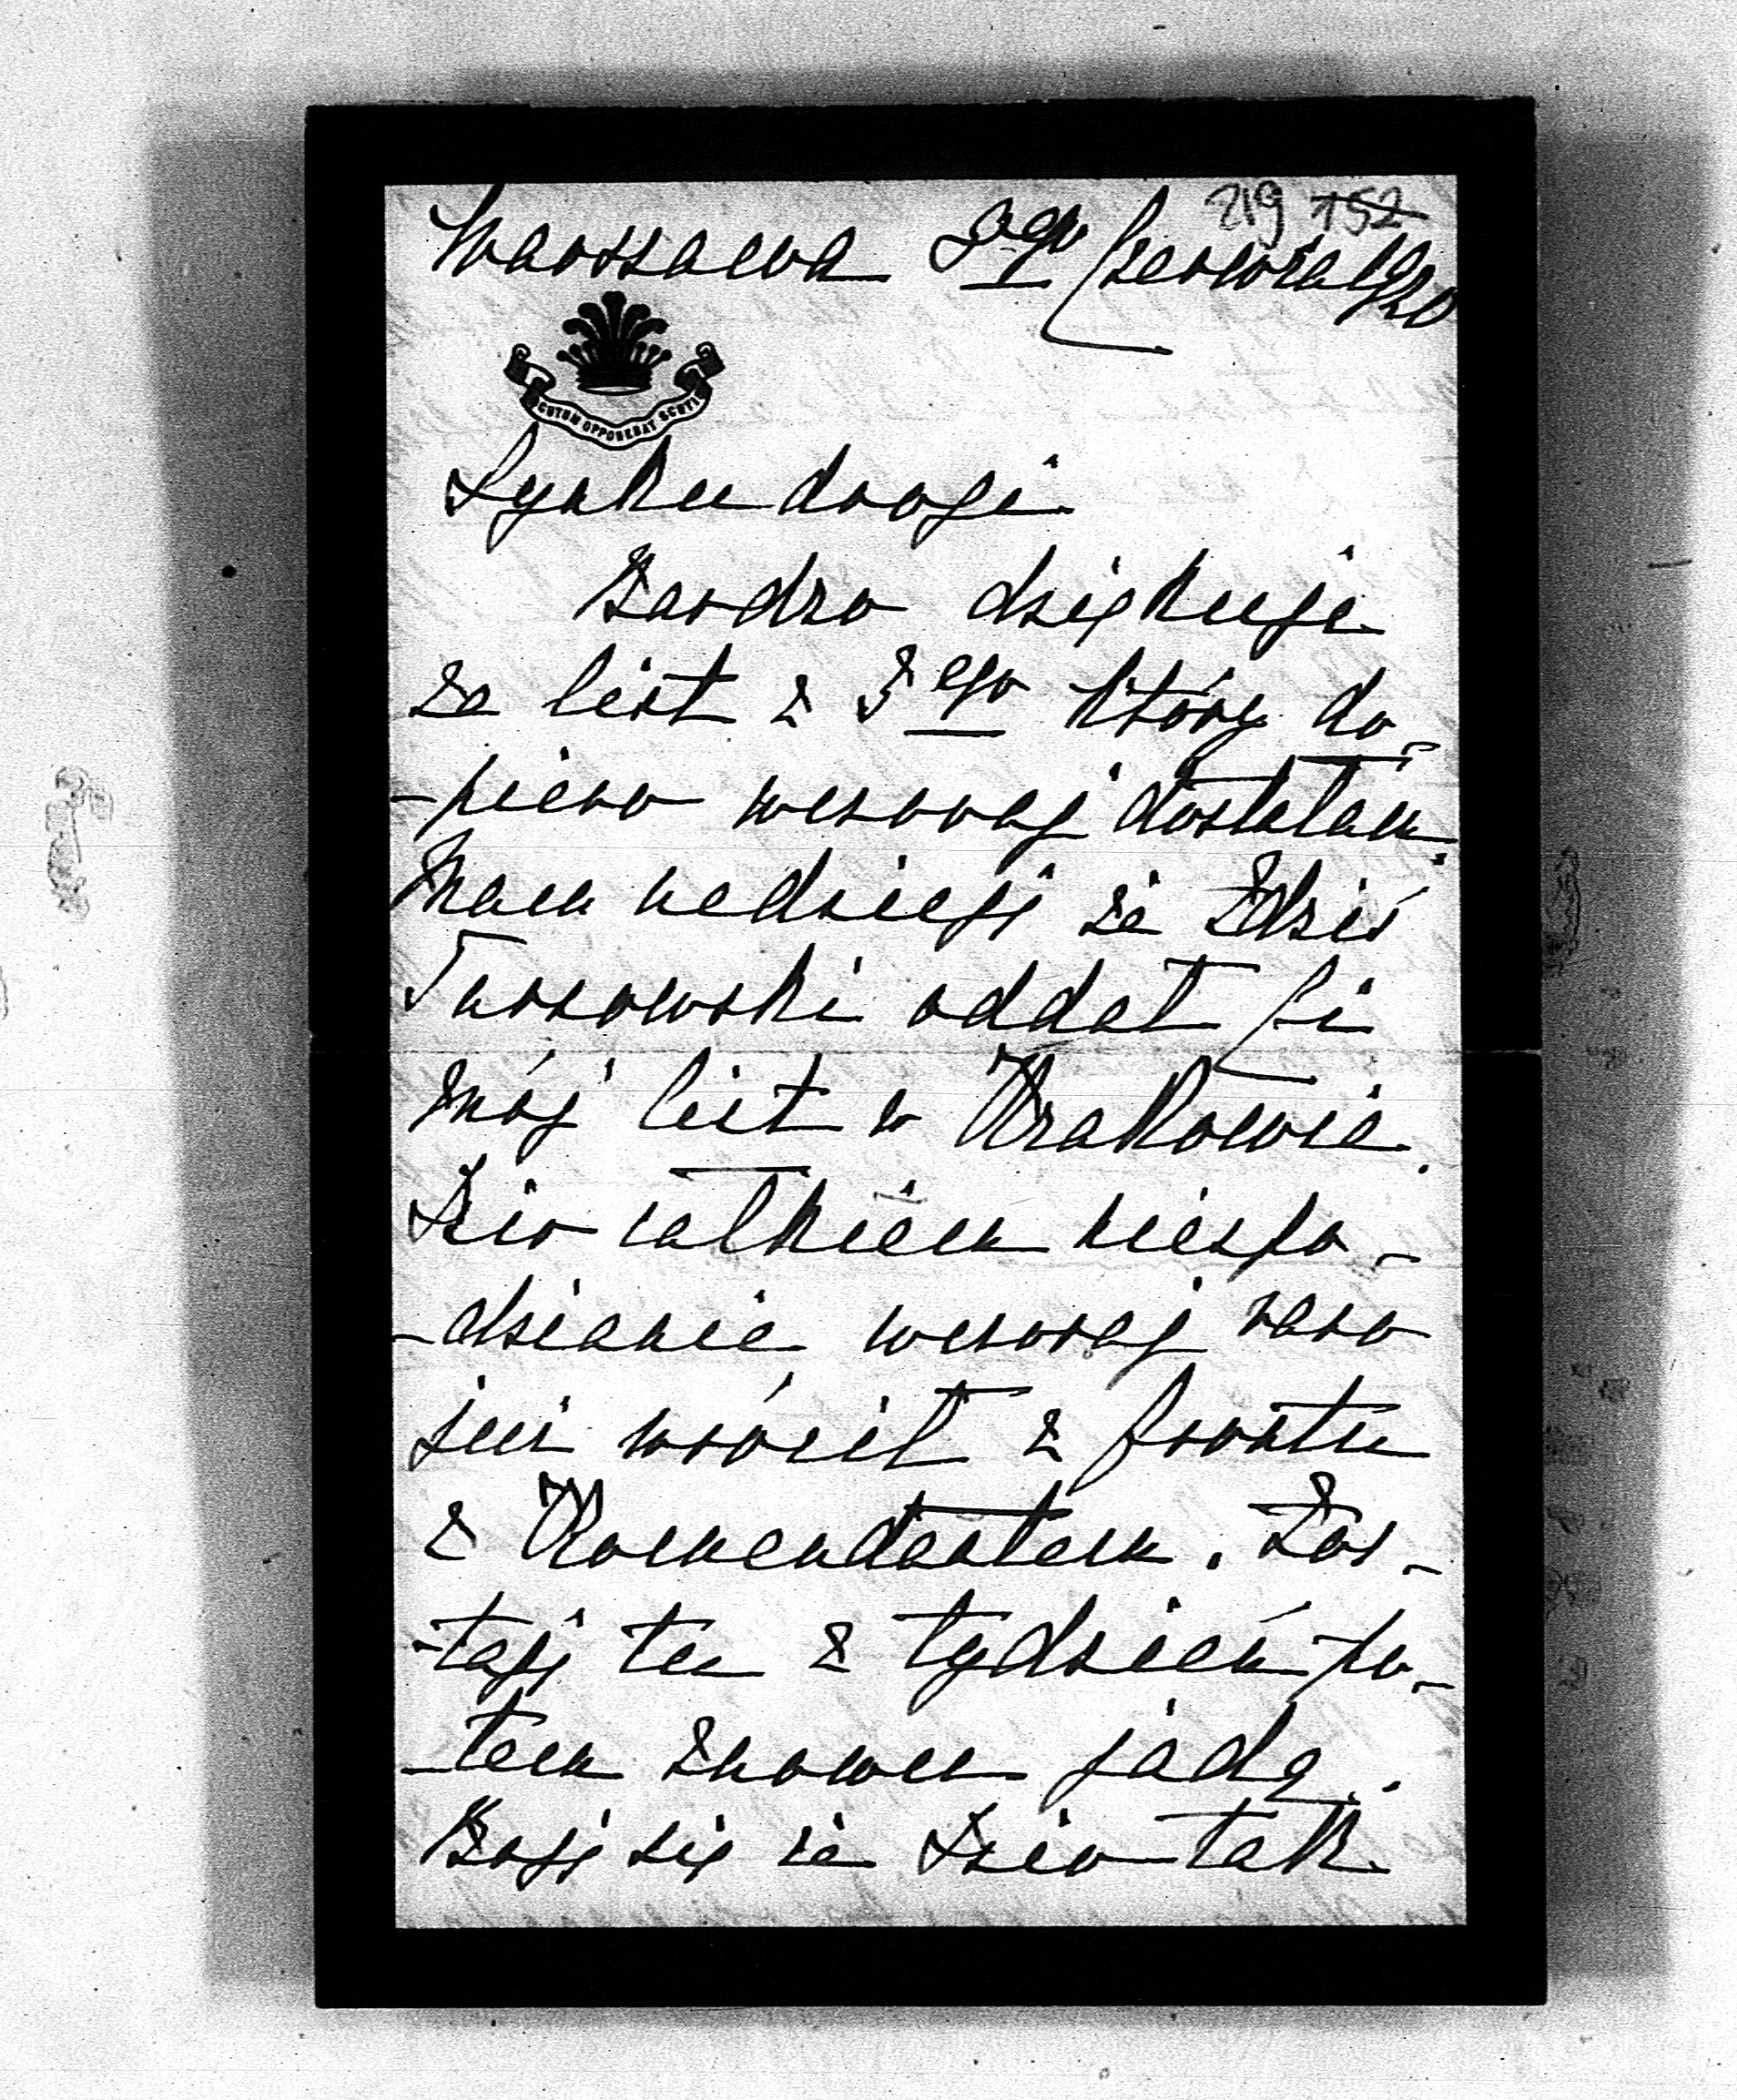 219 152
Warszawa 9go Czerwca 1920
SCUTUM OPPONEBAT SCUTIS
Synku drogi
Bardzo dziękuję
za list z 3ego który do-
-piero wczoraj dostałam.
Mam nadzieję że Zdziś
Tarnowski oddał Ci
mój list w Krakowie.
Dzio całkiem niespo-
-dzianie wczoraj rano
już wrócił z frontu
z Komendantem. Zos-
-tają tu z tydzień po-
-tem znowu jadą.
Boję się że Dzio tak